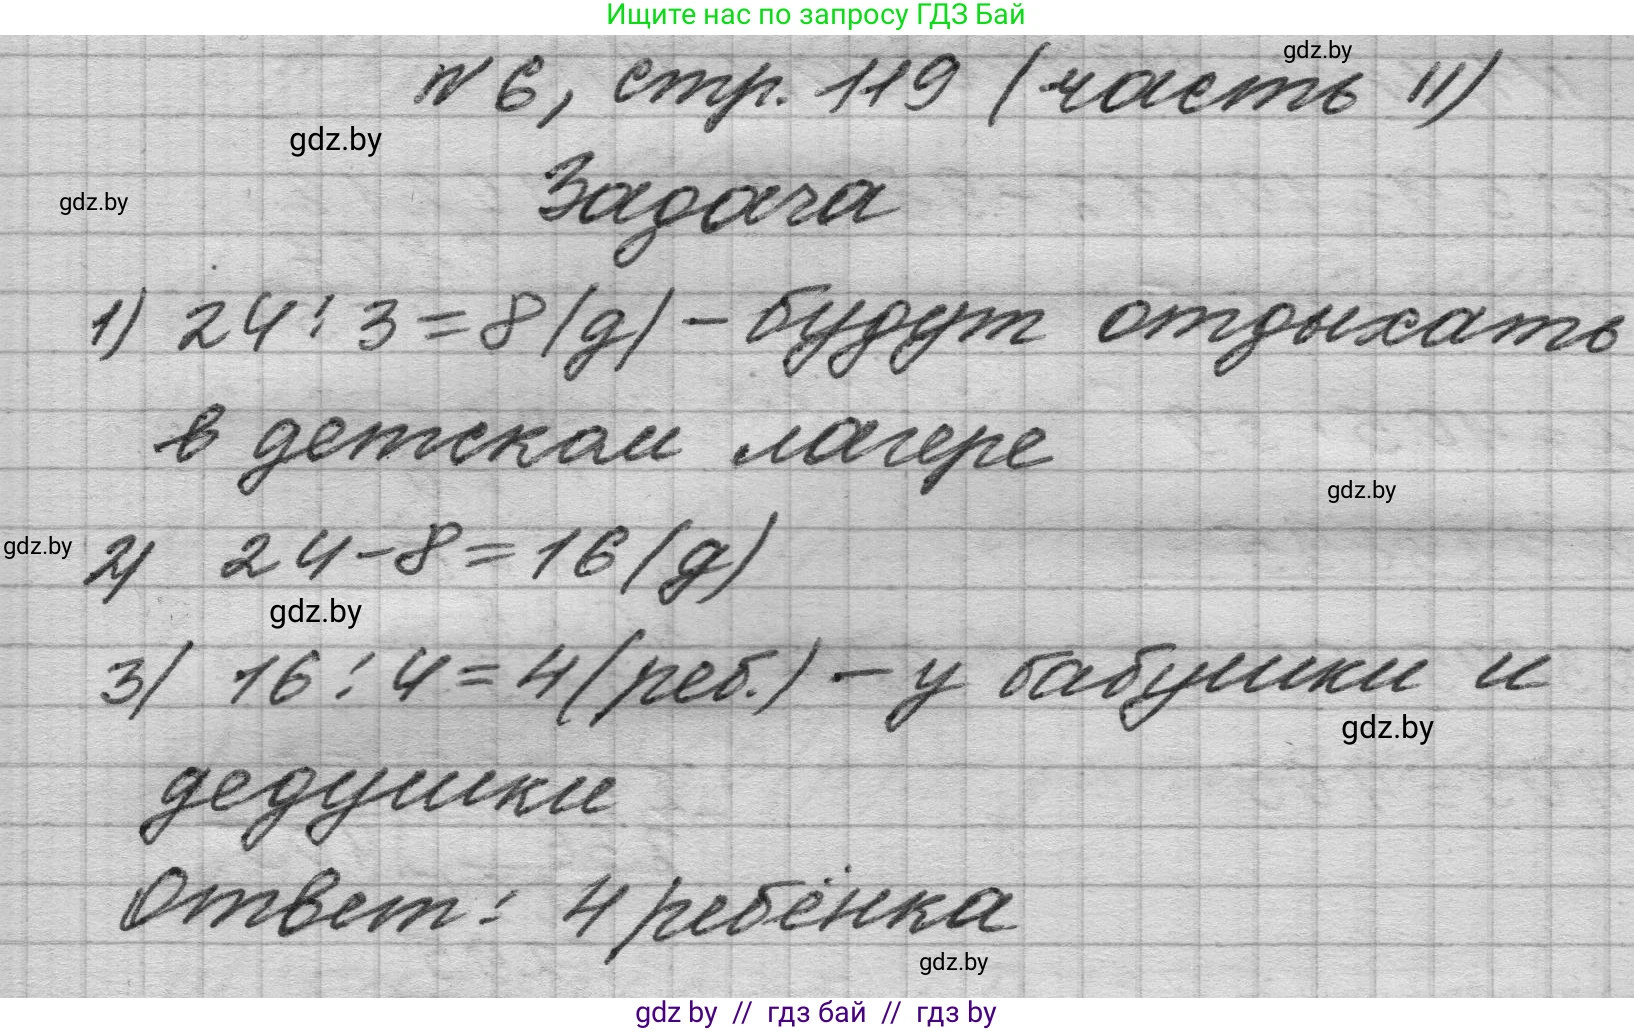 Ищите нас по запросу ГДЗ Бай
gdz.by
№ 6, стр. 119 (часть II)
gdz.by
Задача
gdz.by
1) 24 : 3 = 8 (д) - будут отдыхать
в детском лагере
gdz.by
gdz.by
2) 24 - 8 = 16 (д)
gdz.by
3) 16 : 4 = 4 (реб.) - у бабушки и
gdz.by
дедушки
Ответ: 4 ребёнка
gdz.by
gdz by // гдз бай // gdz by